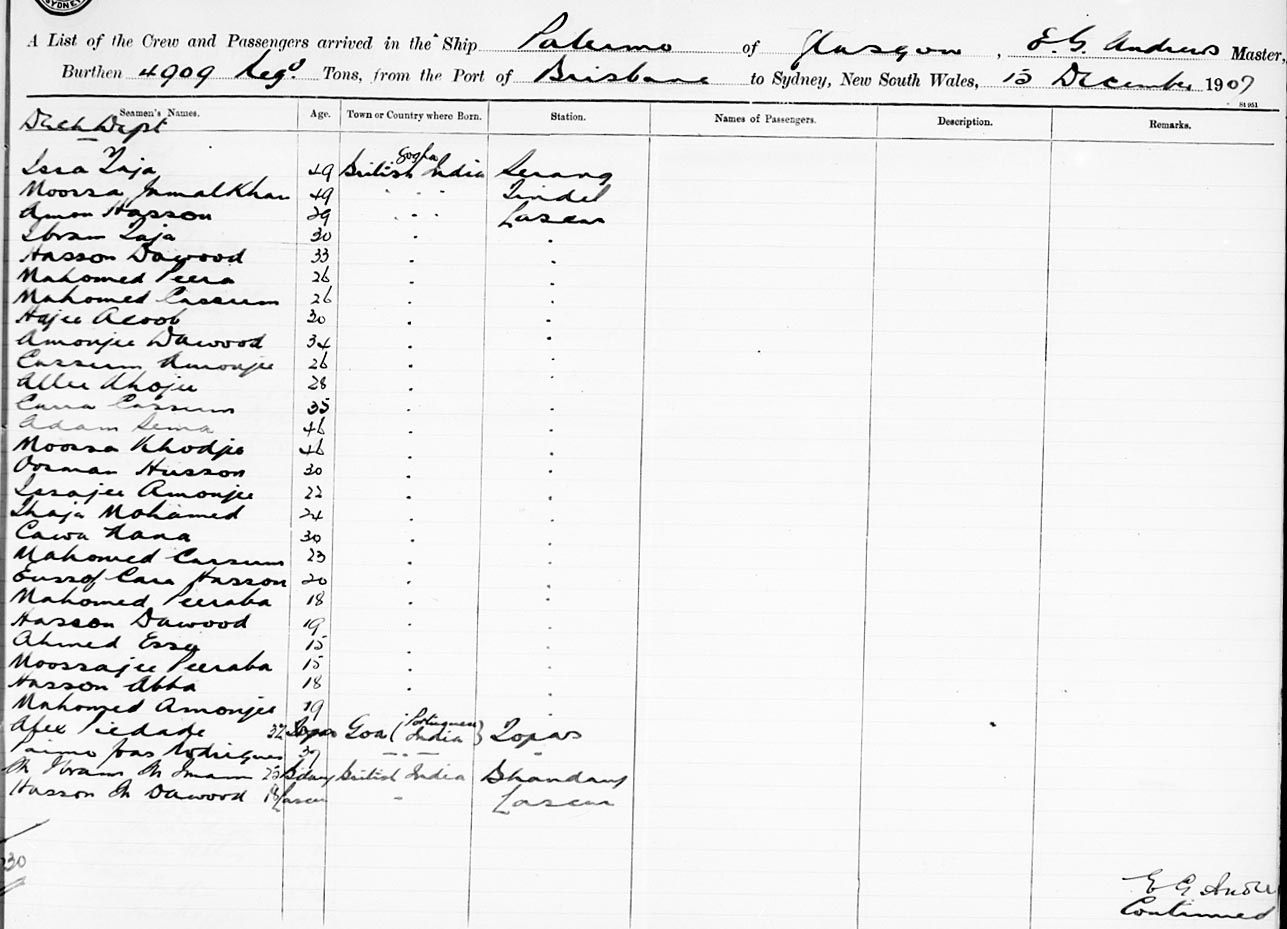 SYDNEY
A List of the Crew and Passengers arrived in the Ship Palermo of Glasgow, E. G. Andrews Master,
Burthen 4909 Regd. Tons, from the Port of Brisbane to Sydney, New South Wales, 15 December 1907
81951
Seamen's Names. Age. Town or Country where Born. Station. Names of Passengers. Description. Remarks.
Deck Dept
Gogha
Issa Taja 49 British India Serang
Moossa Jumalkhan 49 " " Tindel
Amon Hasson 29 " " " Lascar
Ibram Taja 30 " "
Hasson Dawood 33 " "
Mahomed Peera 26 " "
Mahomed Cassum 26 " "
Hajee Acoob 30 " "
Amonjee Dawood 34 " "
Cassum Amonjee 26 " "
Allee Ahojee 28 " "
Cara Cassum 35 " "
Adam Sema 46 " "
Moossa Khodje 46 " "
Oosman Husson 30 " "
Issajee Amonjee 22 " "
Thaja Mohamed 24 " "
Cawa Nana 30 " "
Mahomed Cassum 23 " "
Eussof Cara Hasson 20 " "
Mahomed Peeraba 18 " "
Hasson Dawood 19 " "
Ahmed Essa 15 " "
Moossajee Peeraba 15 " "
Hasson Abba 18 " "
Mahomed Amonjee 19 " "
Alex Piedade 32 Topas Goa (Portuguese India) Topas
Rodrigues 39 " " "
23 Bdary British India Bhandary
Hasson M Dawood 18 Lascar " Lascar
30
E G Andre
Continued